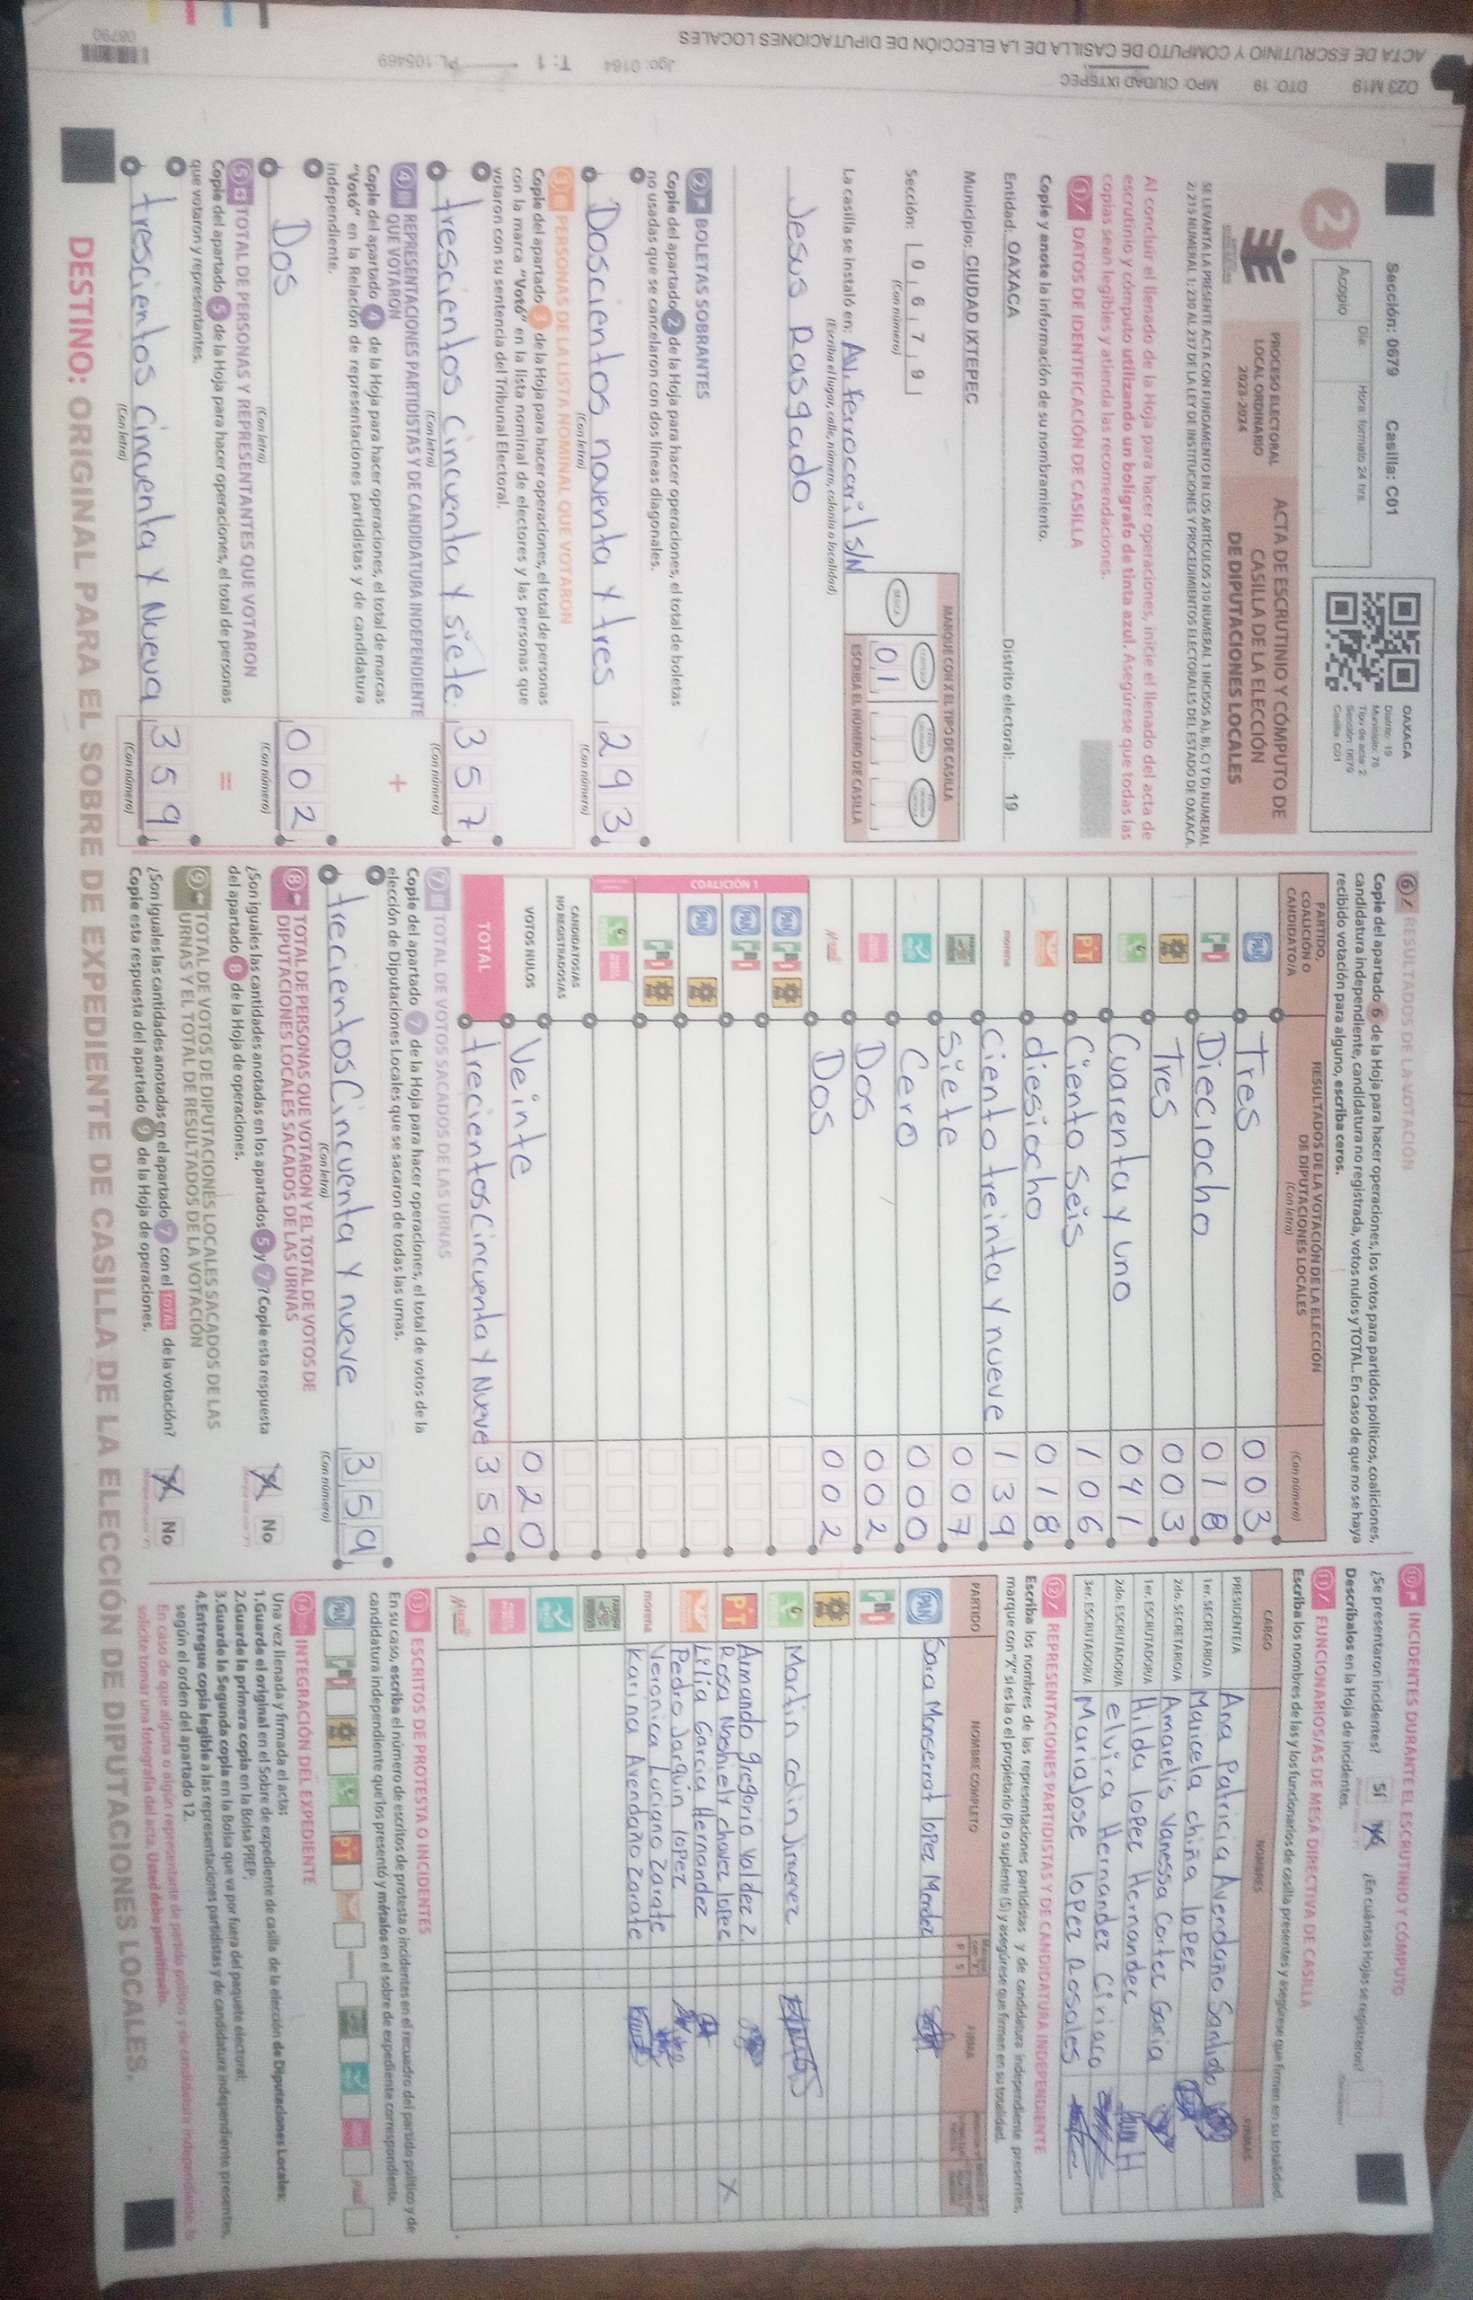 ACTA DE ESCRUTINIO Y CÓMPUTO DE CASILLA DE LA ELECCIÓN DE DIPUTACIONES LOCALES
D23 M19 DTO. 19 MPO. CIUDAD IXTEPEC
Jgo. 0184 T: 1 PL 105469
08790
Sección: 0679 Casilla: C01
2
Acopio
Día:
Hora: formato 24 hrs.
OAXACA
Distrito: 19
Municipio: 76
Tipo de acta: 2
Sección: 0679
Casilla: C01
PROCESO ELECTORAL
LOCAL ORDINARIO
2023-2024
ACTA DE ESCRUTINIO Y CÓMPUTO DE
CASILLA DE LA ELECCIÓN
DE DIPUTACIONES LOCALES
SE LEVANTA LA PRESENTE ACTA CON FUNDAMENTO EN LOS ARTÍCULOS 219 NUMERAL 1 INCISOS A), B), C) Y D) NUMERAL
2; 215 NUMERAL 1; 230 AL 237 DE LA LEY DE INSTITUCIONES Y PROCEDIMIENTOS ELECTORALES DEL ESTADO DE OAXACA.
Al concluir el llenado de la Hoja para hacer operaciones, inicie el llenado del acta de
escrutinio y cómputo utilizando un bolígrafo de tinta azul. Asegúrese que todas las
copias sean legibles y atienda las recomendaciones.
1 DATOS DE IDENTIFICACIÓN DE CASILLA
Copie y anote la información de su nombramiento.
Entidad: OAXACA Distrito electoral: 19
Municipio: CIUDAD IXTEPEC
Sección: 0 6 7 9
(Con número)
MARQUE CON X EL TIPO DE CASILLA
ESCRIBA EL NÚMERO DE CASILLA
01
La casilla se instaló en: Av. ferrocarril S/N
(Escriba el lugar, calle, número, colonia o localidad)
Jesus Rasgado
2 BOLETAS SOBRANTES
Copie del apartado 2 de la Hoja para hacer operaciones, el total de boletas
no usadas que se cancelaron con dos líneas diagonales.
Doscientos noventa y tres 293
(Con letra) (Con número)
3 PERSONAS DE LA LISTA NOMINAL QUE VOTARON
Copie del apartado 3 de la Hoja para hacer operaciones, el total de personas
con la marca "Votó" en la lista nominal de electores y las personas que
votaron con su sentencia del Tribunal Electoral.
trescientos cincuenta y siete. 357
(Con letra) (Con número)
4 REPRESENTACIONES PARTIDISTAS Y DE CANDIDATURA INDEPENDIENTE
QUE VOTARON
Copie del apartado 4 de la Hoja para hacer operaciones, el total de marcas
"Votó" en la Relación de representaciones partidistas y de candidatura
independiente.
+
Dos 002
(Con letra) (Con número)
5 TOTAL DE PERSONAS Y REPRESENTANTES QUE VOTARON
Copie del apartado 5 de la Hoja para hacer operaciones, el total de personas
que votaron y representantes.
=
trescientos cincuenta y Nueva 359
(Con letra) (Con número)
6 RESULTADOS DE LA VOTACIÓN
Copie del apartado 6 de la Hoja para hacer operaciones, los votos para partidos políticos, coaliciones,
candidatura independiente, candidatura no registrada, votos nulos y TOTAL. En caso de que no se haya
recibido votación para alguno, escriba ceros.
PARTIDO,
COALICIÓN O
CANDIDATO/A
RESULTADOS DE LA VOTACIÓN DE LA ELECCIÓN
DE DIPUTACIONES LOCALES
(Con letra)
(Con número)
PAN Tres 003
PRI Dieciocho 018
Tres 003
Cuarenta y uno 041
PT Ciento seis 106
diesiocho 018
morena Ciento treinta y nueve 139
Siete 007
Cero 000
Dos 002
Dos 002
COALICIÓN 1
PAN PRI
PAN PRI
PAN
PRI
CANDIDATOS/AS
NO REGISTRADOS/AS
VOTOS NULOS Veinte 020
TOTAL trecientos Cincuenta y Nueve 359
7 TOTAL DE VOTOS SACADOS DE LAS URNAS
Copie del apartado 7 de la Hoja para hacer operaciones, el total de votos de la
elección de Diputaciones Locales que se sacaron de todas las urnas.
trecientos Cincuenta y nueve 359
(Con letra) (Con número)
8 TOTAL DE PERSONAS QUE VOTARON Y EL TOTAL DE VOTOS DE
DIPUTACIONES LOCALES SACADOS DE LAS URNAS
¿Son iguales las cantidades anotadas en los apartados 5 y 7? Copie esta respuesta
del apartado 8 de la Hoja de operaciones.
X No
9 TOTAL DE VOTOS DE DIPUTACIONES LOCALES SACADOS DE LAS
URNAS Y EL TOTAL DE RESULTADOS DE LA VOTACIÓN
¿Son iguales las cantidades anotadas en el apartado 7 con el TOTAL de la votación?
Copie esta respuesta del apartado 9 de la Hoja de operaciones.
X No
10 INCIDENTES DURANTE EL ESCRUTINIO Y CÓMPUTO
¿Se presentaron incidentes? Sí X ¿En cuántas Hojas se registraron?
Descríbalos en la Hoja de incidentes.
11 FUNCIONARIOS/AS DE MESA DIRECTIVA DE CASILLA
Escriba los nombres de las y los funcionarios de casilla presentes y asegúrese que firmen en su totalidad.
CARGO NOMBRES FIRMAS
PRESIDENTE/A Ana Patricia Avendaño Santido
1er. SECRETARIO/A Maricela chiña lopez
2do. SECRETARIO/A Amarelis Vanessa Cortez Garia
1er. ESCRUTADOR/A Hilda lopez Hernandez
2do. ESCRUTADOR/A elvira Hernandez Ciriaco
3er. ESCRUTADOR/A Maria Jose lopez Rosales
12 REPRESENTACIONES PARTIDISTAS Y DE CANDIDATURA INDEPENDIENTE
Escriba los nombres de las representaciones partidistas y de candidatura independiente presentes,
marque con "X" si es la o el propietario (P) o suplente (S) y asegúrese que firmen en su totalidad.
PARTIDO NOMBRE COMPLETO P S FIRMA
PAN Sara Monserrat lopez Mendez
PRI
Martin colin Jimenez
PT Armando gregorio Valdez Z. X
Rosa Nashielly chavez lopez
Lilia Garcia Hernandez
Pedro Jarquin lopez
morena Veronica Luciano Zarate
Karina Avendaño Zarate
13 ESCRITOS DE PROTESTA O INCIDENTES
En su caso, escriba el número de escritos de protesta o incidentes en el recuadro del partido político y de
candidatura independiente que los presentó y métalos en el sobre de expediente correspondiente.
PAN PRI PT
14 INTEGRACIÓN DEL EXPEDIENTE
Una vez llenada y firmada el acta:
1.Guarde el original en el Sobre de expediente de casilla de la elección de Diputaciones Locales;
2.Guarde la primera copia en la Bolsa PREP;
3.Guarde la Segunda copia en la Bolsa que va por fuera del paquete electoral;
4.Entregue copia legible a las representaciones partidistas y de candidatura independiente presentes,
según el orden del apartado 12.
En caso de que alguna o algún representante de partido político y de candidatura independiente, le
solicite tomar una fotografía del acta. Usted debe permitírselo.
DESTINO: ORIGINAL PARA EL SOBRE DE EXPEDIENTE DE CASILLA DE LA ELECCIÓN DE DIPUTACIONES LOCALES.